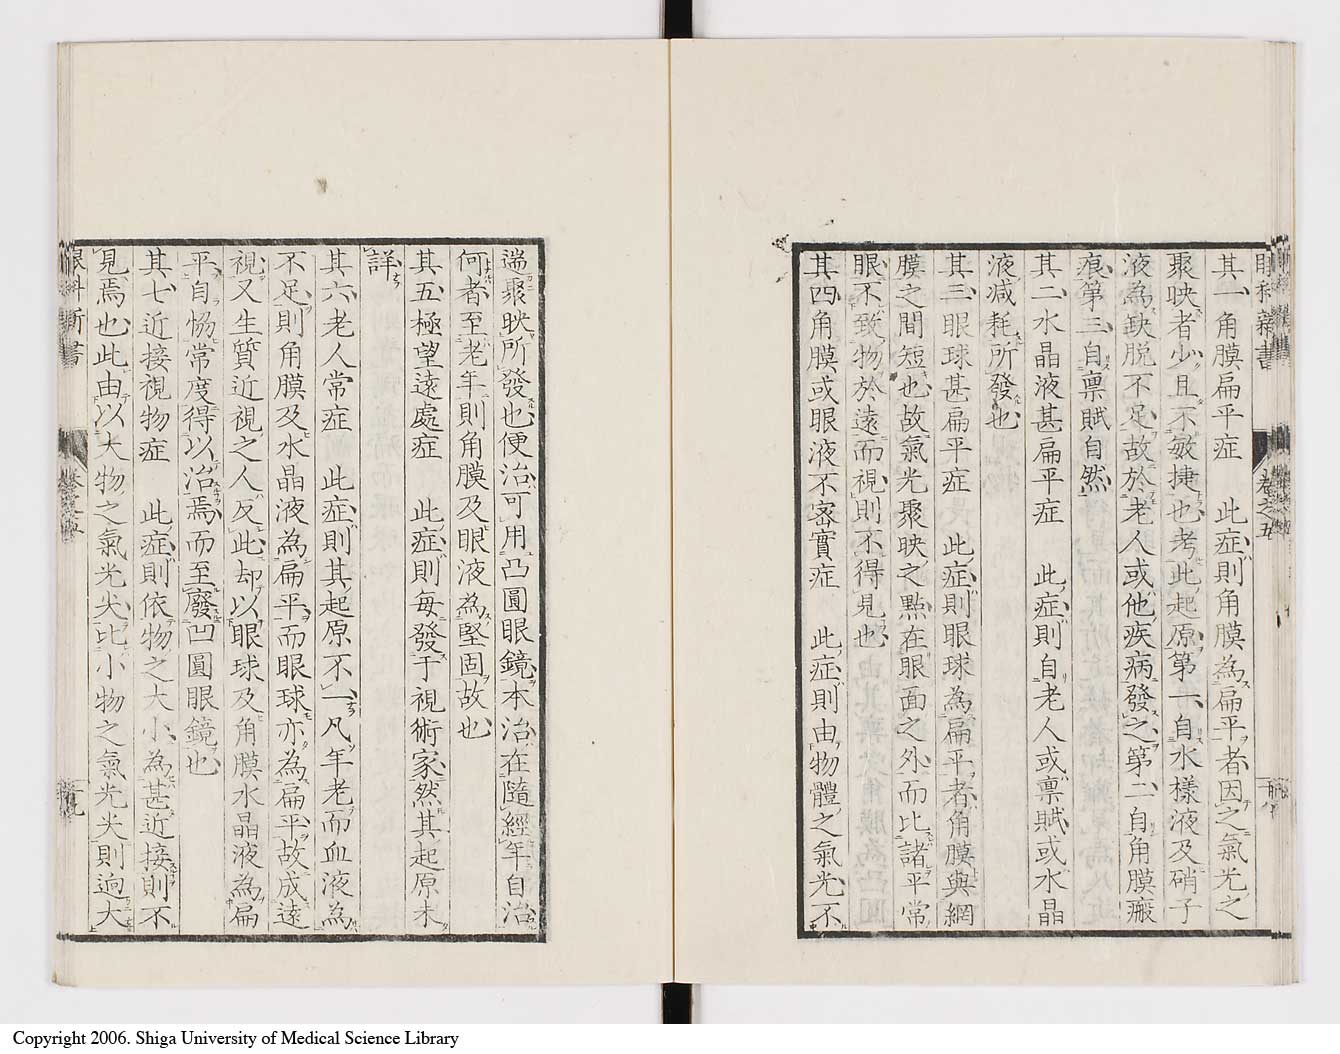 眼科新書 卷之五
其一角膜扁平症 此症則角膜為扁平者因之氣光之
聚映者少且不敏捷也考此起原第一自水樣液及硝子
液為缺脫不足故於老人或他疾病發之第二自角膜瘢
痕第三自禀賦自然
其二水晶液甚扁平症 此症則自老人或禀賦或水晶
液减耗所發也
其三眼球甚扁平症 此症則眼球為扁平者角膜與網
膜之間短也故氣光聚映之點在眼面之外而比諸平常
眼不致物於遠而視則不得見也
其四角膜或眼液不密實症 此症則由物體之氣光不
遄聚映所發也便治可用凸圓眼鏡本治在隨經年自治
何者至老年則角膜及眼液為堅固故也
其五極望遠處症 此症則每發于視術家然其起原未
詳
其六老人常症 此症則其起原不一凡年老而血液為
不足則角膜及水晶液為扁平而眼球亦為扁平故成遠
視又生質近視之人反此却以眼球及角膜水晶液為扁
平自恊常度得以治焉而至廢凹圓眼鏡也
其七近接視物症 此症則依物之大小為甚近接則不
見焉也此由以大物之氣光尖比小物之氣光尖則逈大
眼科新書
Copyright 2006. Shiga University of Medical Science Library